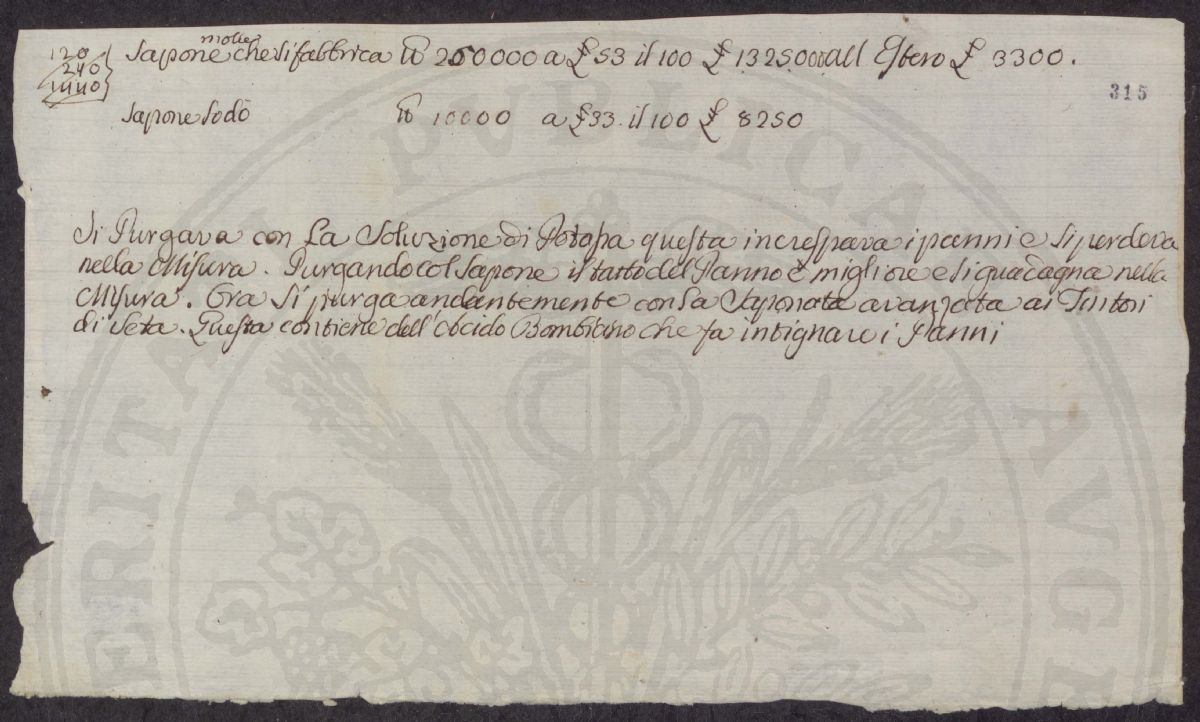 120
240
1440
Sapone molle che si fabbrica lb 250000 a £ 53 il 100 £ 132500 all Estero £ 3300.
315
Sapone Sodo lb 10000 a £ 33. il 100 £ 8250
Si Purgava con La Soluzione di Potassa questa increspava i panni e si perdeva
nella Misura. Purgando col Sapone il tatto del Panno è migliore e si guadagna nella
Misura. Ora Si purga andantemente con la Saponata avanzata ai Tintori
di Seta. Questa contiene dell' Occido Bombicino che fa intignare i Panni
PVBLICAE
AVGE
ERITA